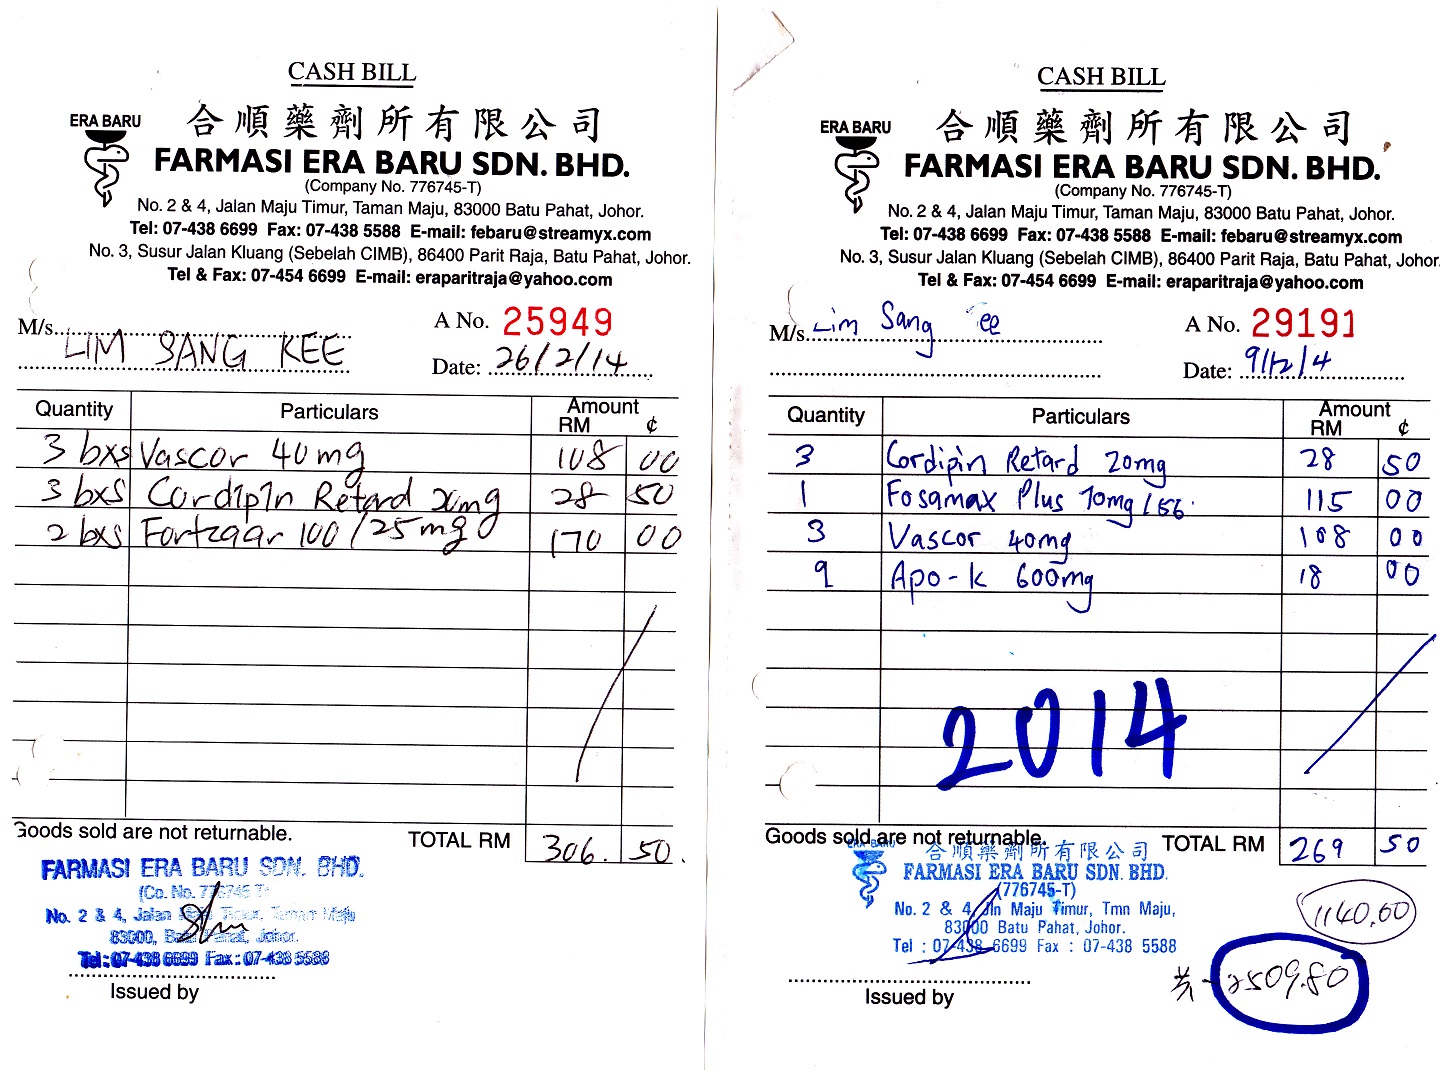 CASH BILL
ERA BARU
合順藥劑所有限公司
FARMASI ERA BARU SDN. BHD.
(Company No. 776745-T)
No. 2 & 4, Jalan Maju Timur, Taman Maju, 83000 Batu Pahat, Johor.
Tel: 07-438 6699 Fax: 07-438 5588 E-mail: febaru@streamyx.com
No. 3, Susur Jalan Kluang (Sebelah CIMB), 86400 Parit Raja, Batu Pahat, Johor.
Tel & Fax: 07-454 6699 E-mail: eraparitraja@yahoo.com
A No. 25949
M/s. LIM SANG KEE
Date: 26/2/14
Quantity Particulars Amount
RM ¢
3 bxs Vascor 40mg 108 00
3 bxs Cordipin Retard 20mg 28 50
2 bxs Fortzaar 100/25mg 170 00
Goods sold are not returnable. TOTAL RM 306. 50.
FARMASI ERA BARU SDN. BHD.
(Co. No. 776745-T)
No. 2 & 4, Jalan Maju Timur, Taman Maju
83000, Batu Pahat, Johor.
Tel: 07-438 6699 Fax: 07-438 5588
Issued by
CASH BILL
ERA BARU
合順藥劑所有限公司
FARMASI ERA BARU SDN. BHD.
(Company No. 776745-T)
No. 2 & 4, Jalan Maju Timur, Taman Maju, 83000 Batu Pahat, Johor.
Tel: 07-438 6699 Fax: 07-438 5588 E-mail: febaru@streamyx.com
No. 3, Susur Jalan Kluang (Sebelah CIMB), 86400 Parit Raja, Batu Pahat, Johor
Tel & Fax: 07-454 6699 E-mail: eraparitraja@yahoo.com
A No. 29191
M/s. Lim Sang ee
Date: 9/12/4
Quantity Particulars Amount
RM ¢
3 Cordipin Retard 20mg 28 50
1 Fosamax Plus 70mg/56 115 00
3 Vascor 40mg 108 00
9 Apo-k 600mg 18 00
2014
Goods sold are not returnable. TOTAL RM 269 50
ERA BARU
合順藥劑所有限公司
FARMASI ERA BARU SDN. BHD.
(776745-T)
No. 2 & 4, Jln Maju Timur, Tmn Maju,
83000 Batu Pahat, Johor.
Tel : 07-438 6699 Fax : 07-438 5588
1140.60
2509.80
Issued by